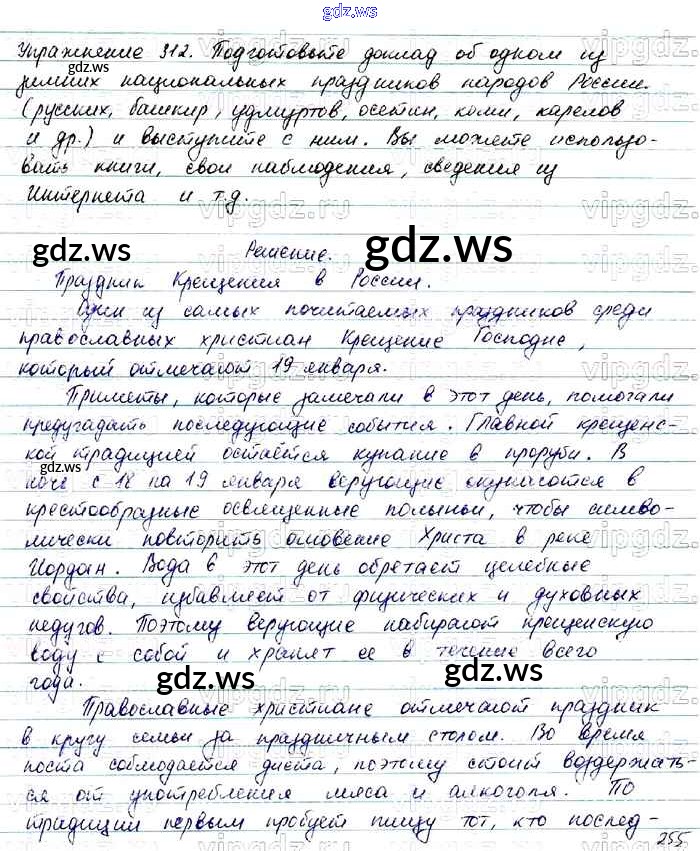 gdz.ws
Упражнение 312. Подготовьте доклад об одном из
gdz.ws
зимних национальных праздников народов России.
(русских, башкир, удмуртов, осетин, коми, карелов
и др.) и выступите с ним. Вы можете использо-
вать книги, свои наблюдения, сведения из
Интернета и т.д.
gdz.ws
Решение.
gdz.ws
Праздник Крещения в России.
Один из самых почитаемых праздников среди
православных христиан Крещение Господне,
который отмечают 19 января.
Приметы, которые замечали в этот день, помогали
предугадать последующие события. Главной крещенс-
кой традицией остаётся купание в проруби. В
gdz.ws
ночь с 18 на 19 января верующие окунаются в
крестообразные освященные полыньи, чтобы симво-
лически повторить омовение Христа в реке
Иордан. Вода в этот день обретает целебные
свойства, избавляет от физических и духовных
недугов. Поэтому верующие набирают крещенскую
воду с собой и хранят ее в течение всего
года.
gdz.ws
gdz.ws
Православные христиане отмечают праздник
в кругу семьи за праздничным столом. Во время
поста соблюдается диета, поэтому стоит воздержать-
ся от употребления мяса и алкоголя. По
традиции первым пробует пищу тот, кто послед-
255